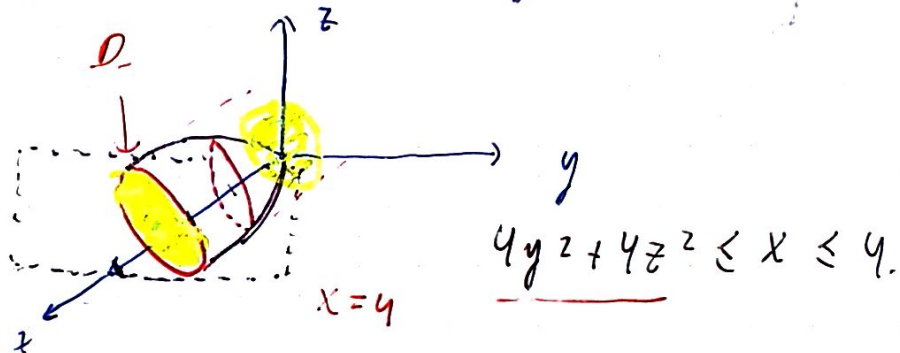 z
D
y
4y² + 4z² ≤ x ≤ 4.
x = 4
x